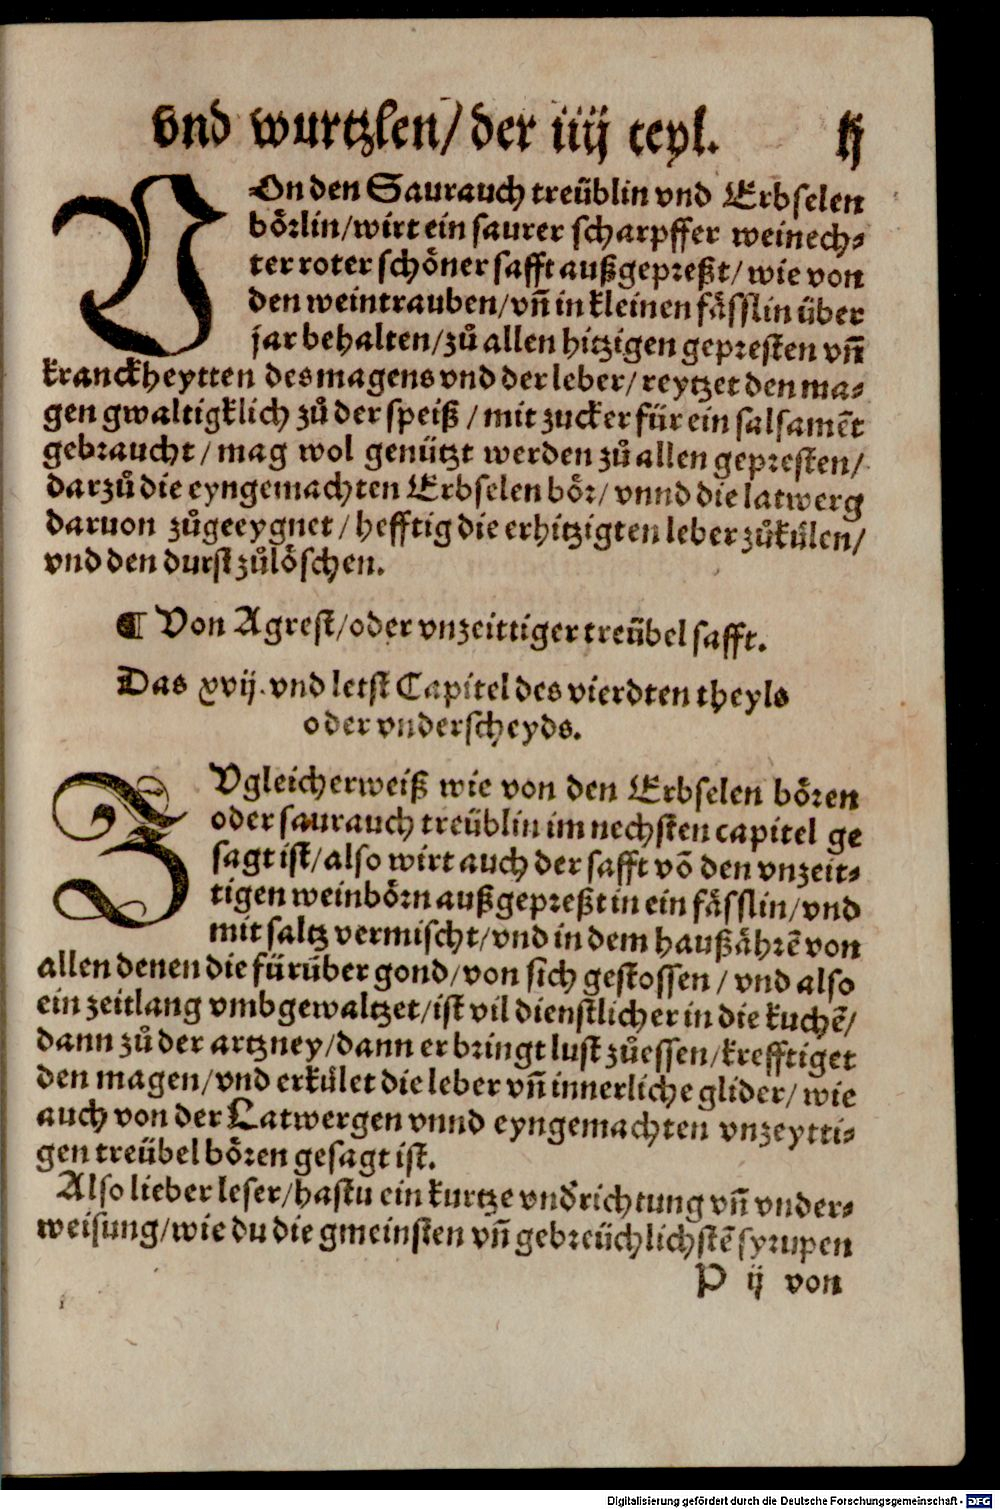 vnd wurtzlen/ der iiij teyl. lj
VOn den Saurauch treüblin vnd Erbselen
börlin/wirt ein saurer scharpffer weinech⸗
ter roter schöner safft außgepreßt/ wie von
den weintrauben/ vñ in kleinen fässlin über
jar behalten/ zů allen hitzigen gepresten vñ
kranckheytten des magens vnd der leber/ reytzet den ma⸗
gen gwaltigklich zů der speiß / mit zucker für ein salsamẽt
gebraucht / mag wol genützt werden zů allen gepresten/
darzů die eyngemachten Erbselen bör/ vnnd die latwerg
daruon zůgeeygnet / hefftig die erhitzigten leber zůkülen/
vnd den durst zůlöschen.
¶ Von Agrest/oder vnzeittiger treübel safft.
Das xvij. vnd letst Capitel des vierdten theyls
oder vnderscheyds.
ZVgleicherweiß wie von den Erbselen bören
oder saurauch treüblin im nechsten capitel ge
sagt ist/ also wirt auch der safft võ den vnzeit⸗
tigen weinbörn außgepreßt in ein fässlin/ vnd
mit saltz vermischt/ vnd in dem haußährẽ von
allen denen die fürüber gond/ von sich gestossen / vnd also
ein zeitlang vmbgewaltzet/ ist vil dienstlicher in die kuchẽ/
dann zů der artzney/dann er bringt lust zůessen/ krefftiget
den magen/ vnd erkület die leber vñ innerliche glider/ wie
auch von der Latwergen vnnd eyngemachten vnzeytti⸗
gen treübel bören gesagt ist.
Also lieber leser/ hastu ein kurtze vnďrichtung vñ vnder⸗
weisung/ wie du die gmeinsten vñ gebreüchlichstẽ syrupen
P ij von
Digitalisierung gefördert durch die Deutsche Forschungsgemeinschaft - DFG